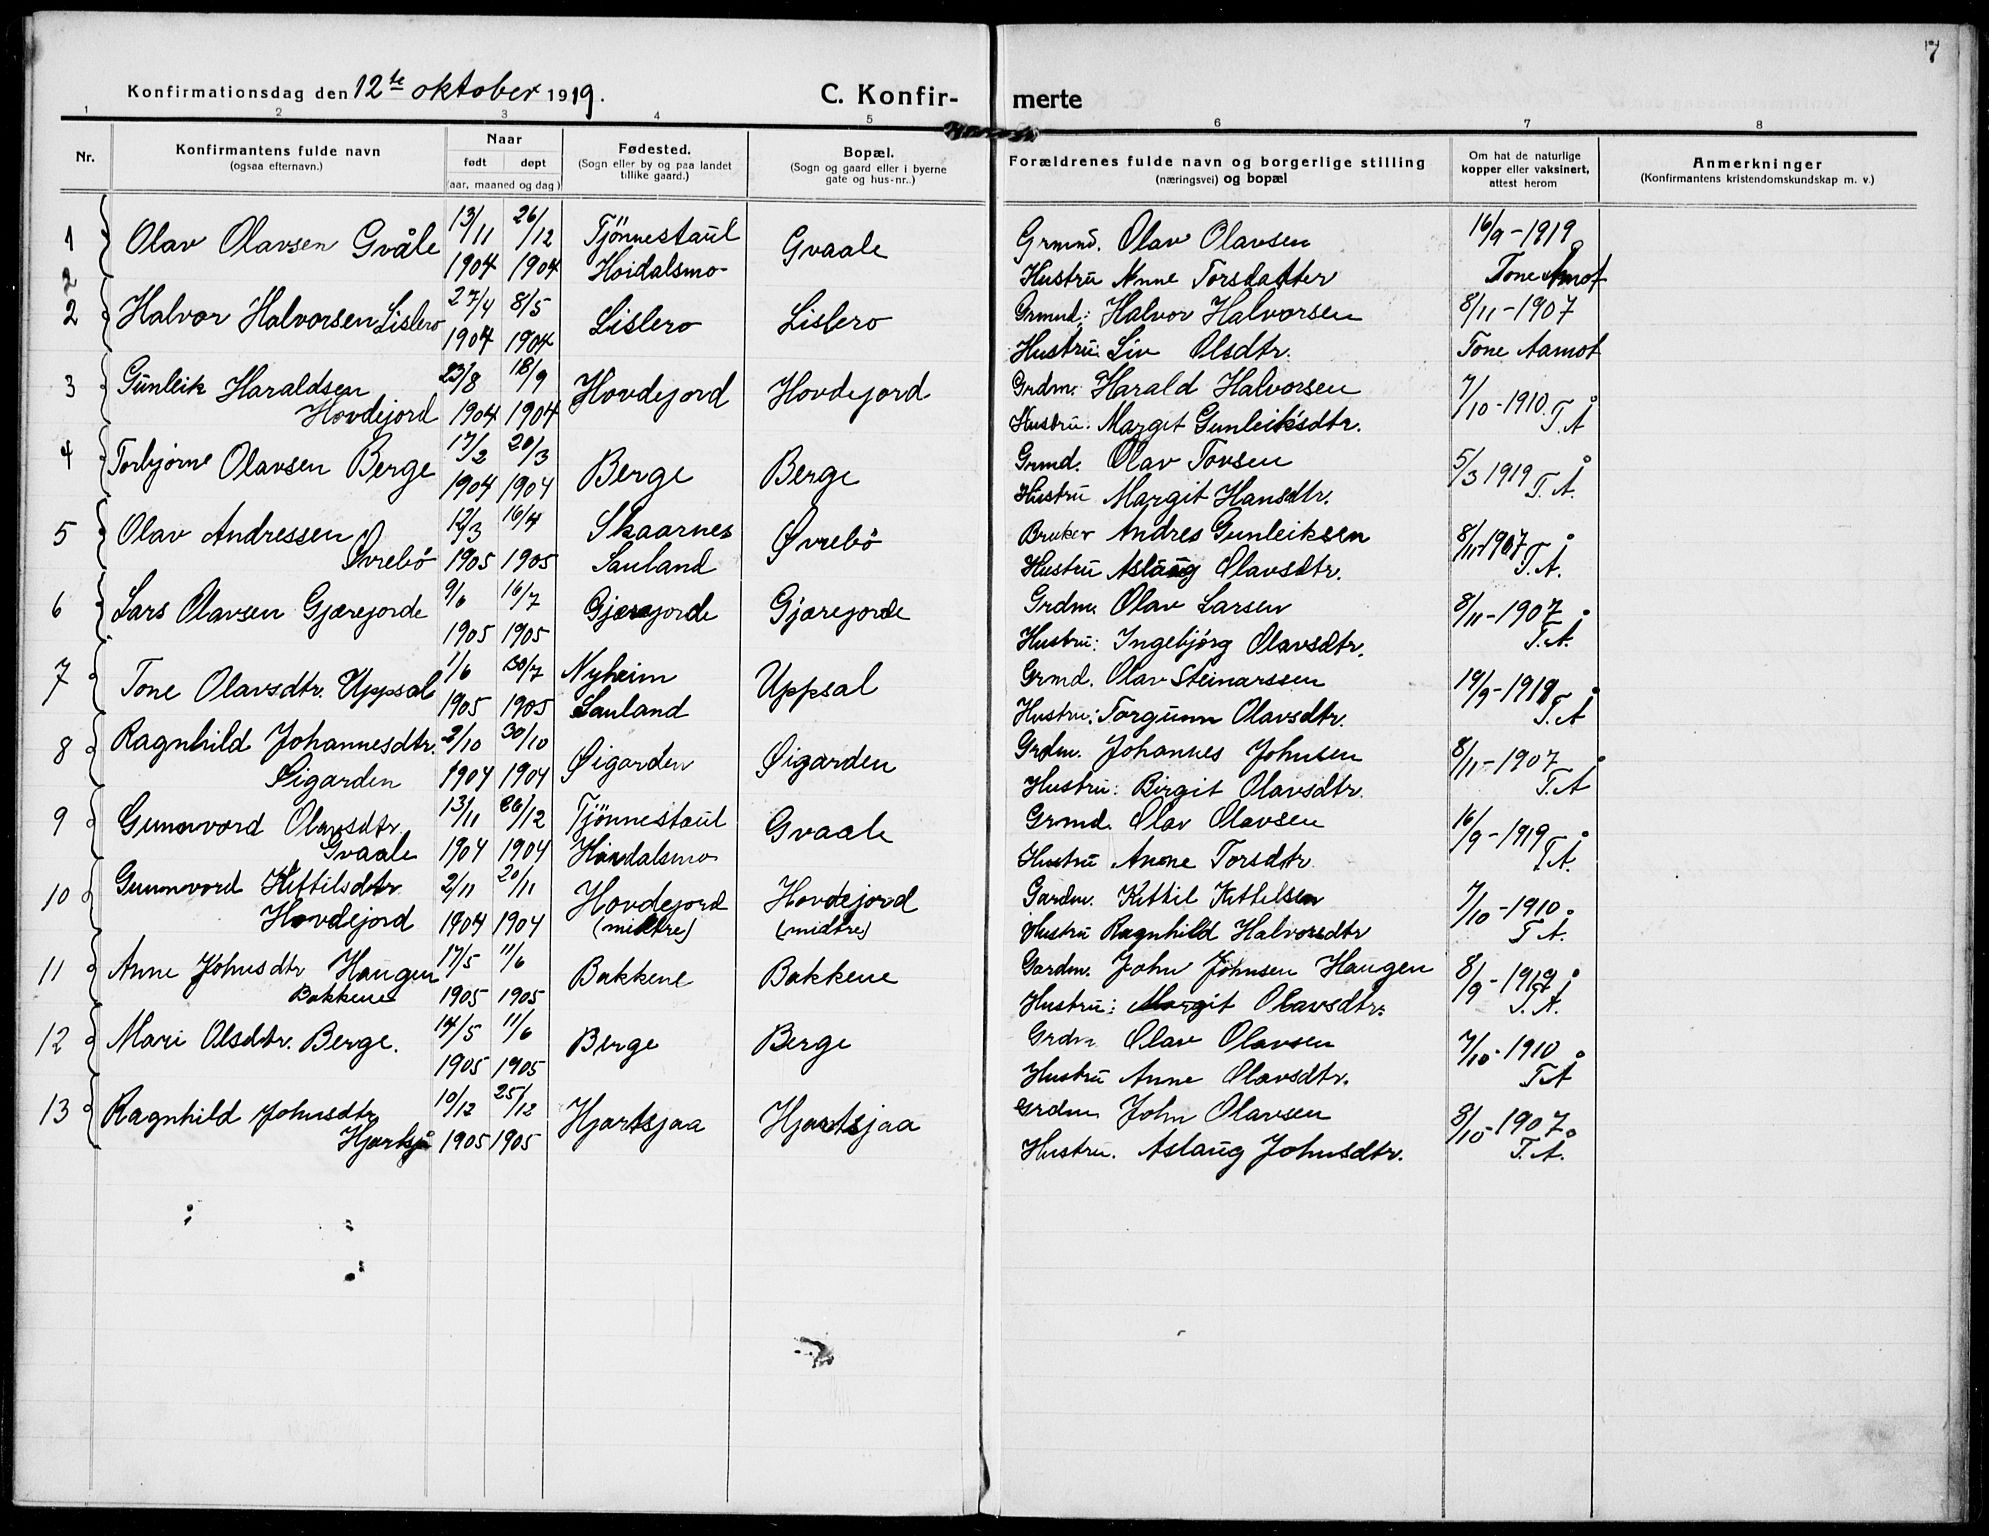 7
Konfirmationsdag den 12te oktober 1919.
C. Konfir- merte
1 2 3 4 5 6 7 8
Nr.
Konfirmantens fulde navn
(ogsaa efternavn.)
Naar
født døpt
(aar, maaned og dag)
Fødested.
(Sogn eller by og paa landet
tillike gaard.)
Bopæl.
(Sogn og gaard eller i byerne
gate og hus-nr..)
Forældrenes fulde navn og borgerlige stilling
(næringsvei) og bopæl
Om hat de naturlige
kopper eller vaksinert,
attest herom
Anmerkninger
(Konfirmantens kristendomskundskap m. v.)
1 Olav Olavsen Gvåle 13/11 26/12 Tjönnestaul Gvaale Grmnd. Olav Olavsen 16/9-1919
1904 1904 Hoidalsmo- Hustru Anne Torsdatter Tone Åmot
2
2 Halvor Halvorsen Lislero 27/4 8/5 Lislero Lislero Grmnd: Halvor Halvorsen 8/11-1907
1904 1904 Hustru: Liv Olsdtr. Tone Aamot
3 Gunleik Haraldsen 23/8 18/9 Hovdejord Hovdejord Grdm. Harald Halvorsen 7/10-1910
Hovdejord 1904 1904 Hustru: Margit Gunleiksdtr. T.Å
4 Torbjørne Olavsen Berge 17/2 20/3 Berge Berge Grmd. Olav Tovsen 5/3 1919
1904 1904 Hustru Margit Hansdtr. T.Å.
5 Olav Andressen 12/3 16/4 Skaarnes Øvrebö Bruker Andres Gunleiksen 8/11-1907
Øvrebö 1905 1905 Sauland Hustru Aslaug Olavsdtr. T.Å.
6 Lars Olavsen Gjærejorde 9/6 16/7 Gjærejorde Gjærejorde Grdm. Olav Larsen 8/11-1907
1905 1905 Hustru: Ingebjörg Olavsdtr. T.Å.
7 Tone Olavsdtr. Uppsal 1/6 30/7 Nyheim Uppsal Grmd. Olav Steinarssen 19/9-1919
1905 1905 Sauland Hustru: Torgunn Olavsdtr. T.Å
8 Ragnhild Johannesdtr. 2/10 30/10 Øigarden Øigarden Grdm. Johannes Johnsen 8/11-1907
Øigarden 1904 1904 Hustru: Birgit Olavsdtr. T.Å
9 Gunnvord Olavsdtr. 13/11 26/12 Tjönnestaul Gvaale Grmd. Olav Olavsen 16/9-1919
Gvaale 1904 1904 Høidalsmo Hustru Anne Torsdtr. T.Å.
10 Gunnvord Kittilsdtr. 2/11 20/11 Hovdejord Hovdejord Gardm. Kittil Kittilsen 7/10-1910
Hovdejord 1904 1904 (midtre) (midtre) Hustru Ragnhild Halvorsdtr T.Å.
11 Anne Johnsdtr Haugen 17/5 11/6 Bakkene Bakkene Gardm. John Johnsen Haugen 8/9-1919
Bakkene 1905 1905 Hustru: Margit Olavsdtr. T.Å.
12 Mari Olsdtr. Berge. 14/5 11/6 Berge Berge Grdm Olav Olavsen 7/10-1910
1905 1905 Hustru Anne Olavsdtr. T.Å
13 Ragnhild Johnsdtr 10/12 25/12 Hjartsjaa Hjartsjaa Grdm John Olavsen 8/10-1907
Hjartsjå 1905 1905 Hustru. Aslaug Johnsdtr. T.Å.